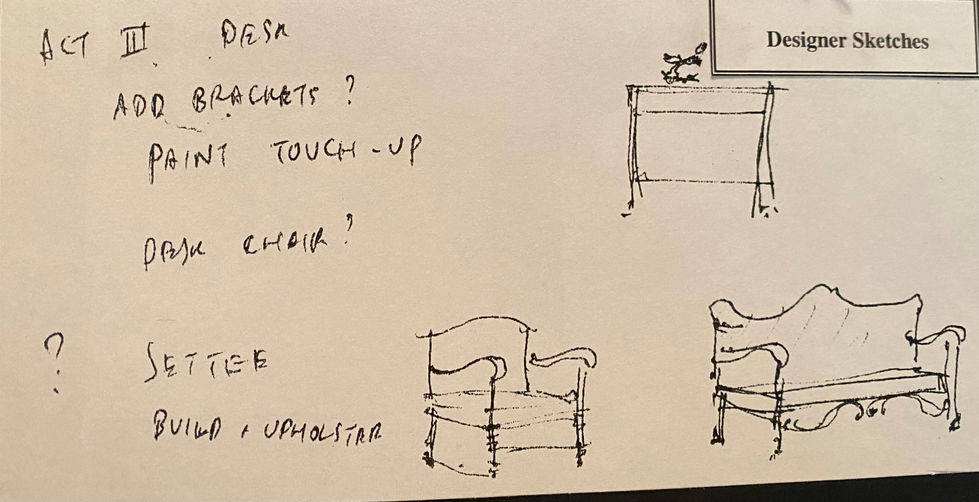 Designer Sketches
ACT III DESK
ADD BRACKETS ?
PAINT TOUCH-UP
DESK CHAIR ?
? SETTEE
BUILD + UPHOLSTAR